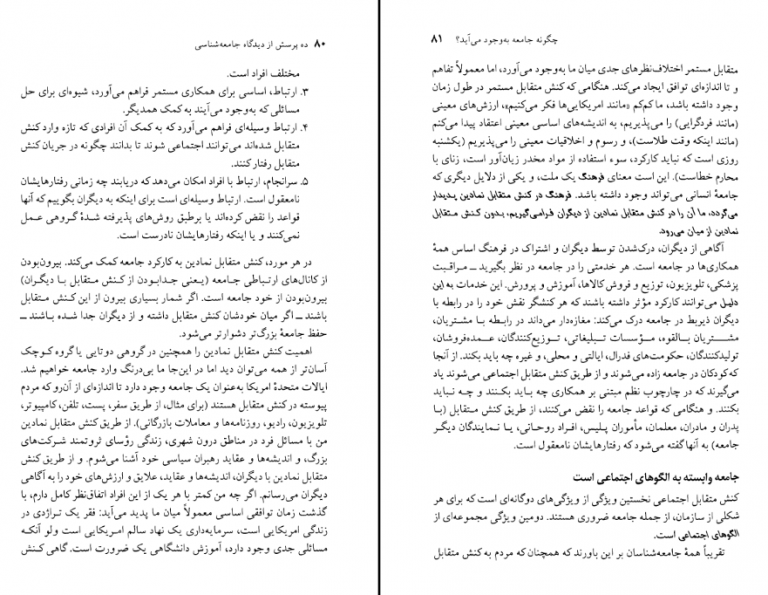 ۸۰ ده پرسش از دیدگاه جامعه‌شناسی
مختلف افراد است.
۳. ارتباط، اساسی برای همکاری مستمر فراهم می‌آورد، شیوه‌ای برای حل
مسائلی که به‌وجود می‌آیند به کمک همدیگر.
۴. ارتباط وسیله‌ای فراهم می‌آورد که به کمک آن افرادی که تازه وارد کنش
متقابل شده‌اند می‌توانند اجتماعی شوند تا بدانند چگونه در جریان کنش
متقابل رفتار کنند.
۵. سرانجام، ارتباط با افراد امکان می‌دهد که دریابند چه زمانی رفتارهایشان
نامعقول است. ارتباط وسیله‌ای است برای اینکه به دیگران بگوییم که آنها
قواعد را نقض کرده‌اند یا برطبق روش‌های پذیرفته شدهٔ گروهی عمل
نمی‌کنند و یا اینکه رفتارهایشان نادرست است.
در هر مورد، کنش متقابل نمادین به کارکرد جامعه کمک می‌کند. بیرون‌بودن
از کانال‌های ارتباطی جامعه (یعنی جدابودن از کنش متقابل با دیگران)
بیرون‌بودن از خود جامعه است. اگر شمار بسیاری بیرون از این کنش متقابل
باشند ــ اگر میان خودشان کنش متقابل داشته و از دیگران جدا شده باشند ــ
حفظ جامعهٔ بزرگ‌تر دشوارتر می‌شود.
اهمیت کنش متقابل نمادین را همچنین در گروهی دوتایی یا گروه کوچک
آسان‌تر از همه می‌توان دید اما در این‌جا ما بی‌درنگ وارد جامعه خواهیم شد.
ایالات متحدهٔ امریکا به‌عنوان یک جامعه وجود دارد تا اندازه‌ای از آن‌رو که مردم
پیوسته در کنش متقابل هستند (برای مثال، از طریق سفر، پست، تلفن، کامپیوتر،
تلویزیون، رادیو، روزنامه‌ها و معاملات بازرگانی). از طریق کنش متقابل نمادین
من با مسائل فرد در مناطق درون شهری، زندگی رؤسای ثروتمند شرکت‌های
بزرگ، و اندیشه‌ها و عقاید رهبران سیاسی خود آشنا می‌شوم. و از طریق کنش
متقابل نمادین با دیگران، اندیشه‌ها و عقاید، علایق و ارزش‌های خود را به آگاهی
دیگران می‌رسانم. اگر چه من کمتر با هر یک از این افراد اتفاق‌نظر کامل دارم، با
گذشت زمان توافقی اساسی معمولاً میان ما پدید می‌آید: فقر یک تراژدی در
زندگی امریکایی است، سرمایه‌داری یک نهاد سالم امریکایی است ولو آنکه
مسائلی جدی وجود دارد، آموزش دانشگاهی یک ضرورت است. گاهی کنش
چگونه جامعه به‌وجود می‌آید؟ ۸۱
متقابل مستمر اختلاف‌نظرهای جدی میان ما به‌وجود می‌آورد، اما معمولاً تفاهم
و تا اندازه‌ای توافق ایجاد می‌کند. هنگامی که کنش متقابل مستمر در طول زمان
وجود داشته باشد، ما کم‌کم «مانند امریکایی‌ها فکر می‌کنیم»، ارزش‌های معینی
(مانند فردگرایی) را می‌پذیریم، به اندیشه‌های اساسی معینی اعتقاد پیدا می‌کنم
(مانند اینکه وقت طلاست)، و رسوم و اخلاقیات معینی را می‌پذیریم (یکشنبه
روزی است که نباید کارکرد، سوء استفاده از مواد مخدر زیان‌آور است، زنای با
محارم خطاست). این است معنای فرهنگ یک ملت، و یکی از دلایل دیگری که
جامعهٔ انسانی می‌تواند وجود داشته باشد. فرهنگ در کنش متقابل نمادین پدیدار
می‌گردد، ما آن را در کنش متقابل نمادین از دیگران فرامی‌گیریم، بدون کنش متقابل
نمادین از میان می‌رود.
آگاهی از دیگران، درک‌شدن توسط دیگران و اشتراک در فرهنگ اساس همهٔ
همکاری‌ها در جامعه است. هر خدمتی را در جامعه در نظر بگیرید ــ مراقبت
پزشکی، تلویزیون، توزیع و فروش کالاها، آموزش و پرورش. این خدمات به این
دلیل می‌توانند کارکرد مؤثر داشته باشند که هر کنشگر نقش خود را در رابطه با
دیگران ذیربط در جامعه درک می‌کند: مغازه‌دار می‌داند در رابطه با مشتریان،
مشتریان بالقوه، مؤسسات تبلیغاتی، توزیع‌کنندگان، عمده‌فروشان،
تولیدکنندگان، حکومت‌های فدرال، ایالتی و محلی، و غیره چه باید بکند. از آنجا
که کودکان در جامعه زاده می‌شوند و از طریق کنش متقابل اجتماعی می‌شوند یاد
می‌گیرند که در چارچوب نظم مبتنی بر همکاری چه باید بکنند و چه نباید
بکنند. و هنگامی که قواعد جامعه را نقض می‌کنند، از طریق کنش متقابل (با
پدران و مادران، معلمان، مأموران پلیس، افراد روحانی، یا نمایندگان دیگر
جامعه) به آنها گفته می‌شود که رفتارهایشان نامعقول است.
جامعه وابسته به الگوهای اجتماعی است
کنش متقابل اجتماعی نخستین ویژگی از ویژگی‌های دوگانه‌ای است که برای هر
شکلی از سازمان، از جمله جامعه ضروری هستند. دومین ویژگی مجموعه‌ای از
الگوهای اجتماعی است.
تقریباً همهٔ جامعه‌شناسان بر این باورند که همچنان‌که مردم به کنش متقابل